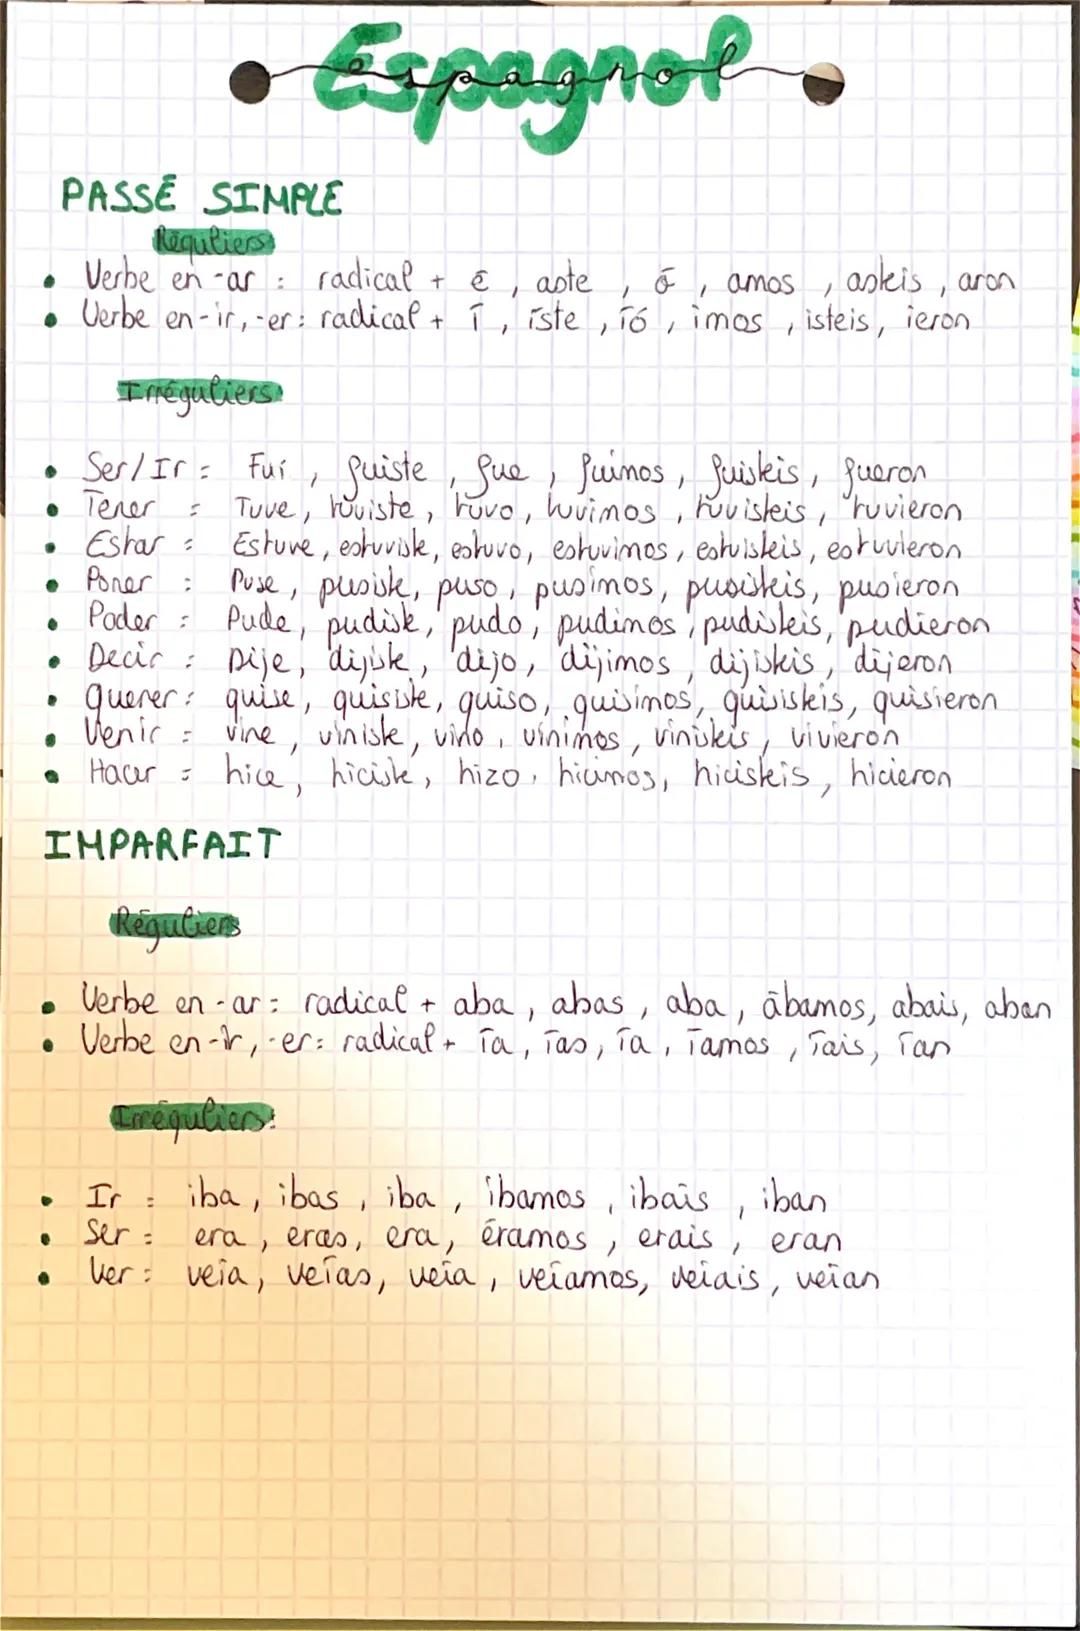 Espagnol
espagnol
PASSÉ SIMPLE
Réguliers
• Verbe en -ar : radical + é, aste, ó, amos, asteis, aron
• Verbe en -ir, -er : radical + í, íste, íó, imos, isteis, ieron
Irréguliers
• Ser/Ir = Fuí, fuiste, fue, fuimos, fuisteis, fueron
• Tener = Tuve, tuviste, tuvo, tuvimos, tuvisteis, tuvieron
• Estar = Estuve, estuviste, estuvo, estuvimos, estuisteis, estuvieron
• Poner : Puse, pusiste, puso, pusimos, pusisteis, pusieron
• Poder : Pude, pudiste, pudo, pudimos, pudisteis, pudieron
• Decir : Dije, dijiste, dijo, dijimos, dijisteis, dijeron
• Querer : quise, quisiste, quiso, quisimos, quisisteis, quisieron
• Venir = vine, viniste, vino, vinimos, vinisteis, vivieron
• Hacer = hice, hiciste, hizo, hicimos, hicisteis, hicieron
IMPARFAIT
Réguliers
• Verbe en -ar : radical + aba, abas, aba, ábamos, abais, aban
• Verbe en -ir, -er : radical + ía, ías, ía, íamos, íais, ían
Irréguliers:
• Ir = iba, ibas, iba, íbamos, ibais, iban
• Ser = era, eras, era, éramos, erais, eran
• Ver = veía, veías, veía, veíamos, veíais, veían